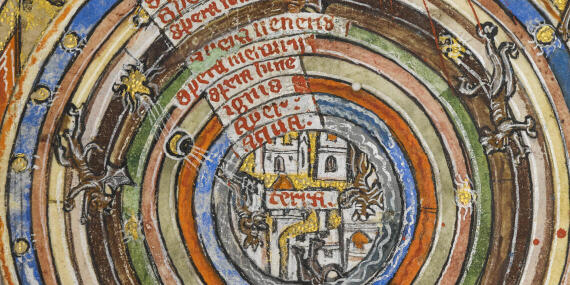 spera ueneris
spera mercurij
spera lune
ignis
Aer:
aqua:
terra.